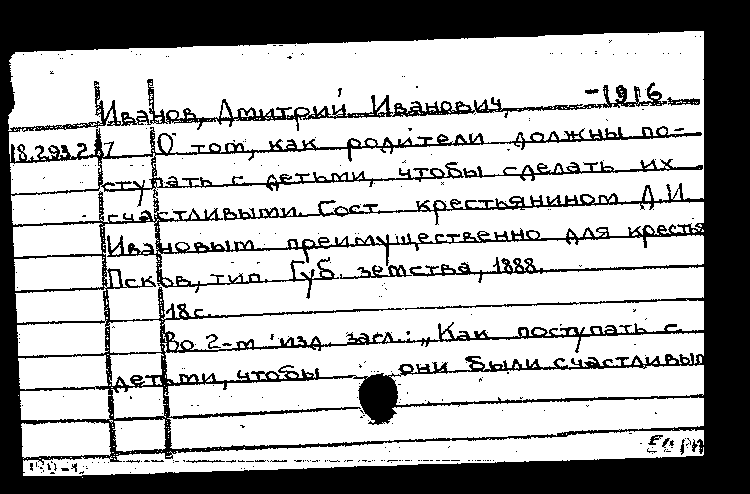 Иванов, Дмитрий Иванович, -1916.
18.293.2.87 О том, как родители должны по-
ступать с детьми, чтобы сделать их
счастливыми. Сост. крестьянином Д.И.
Ивановым преимущественно для крестья
Псков, тип. Губ. земства, 1888.
18с.
Во 2-м изд. загл.: „Как поступать с
детьми, чтобы они были счастливым